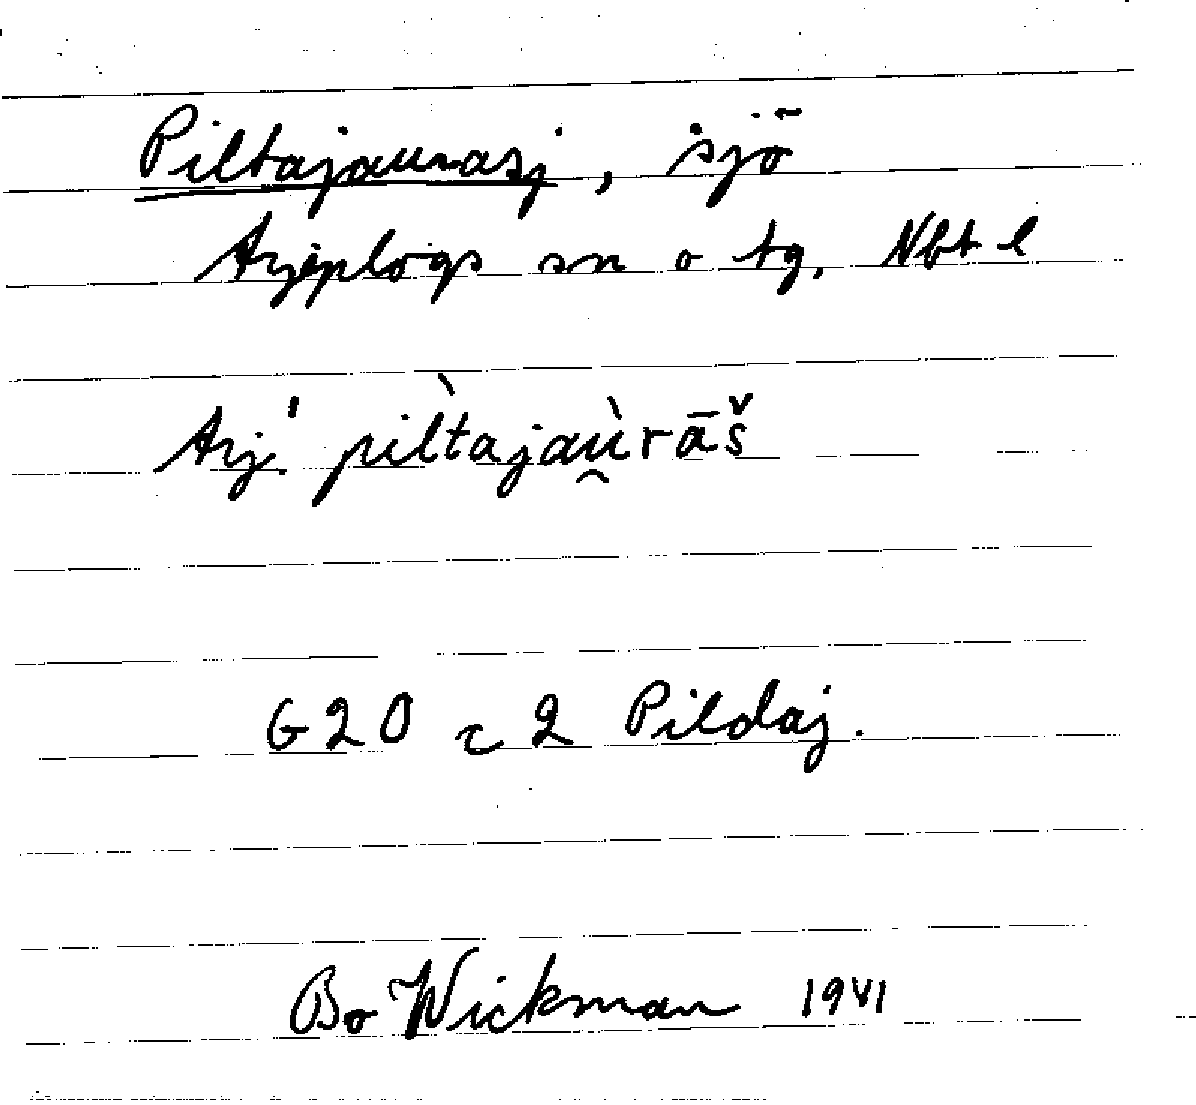 Piltajaurasj, sjö
Arjeplogs sn o tg, Nbt l
Arj. pil̀tajaù̯rāš
G20 c 2 Pildaj.
Bo Wickman 1941